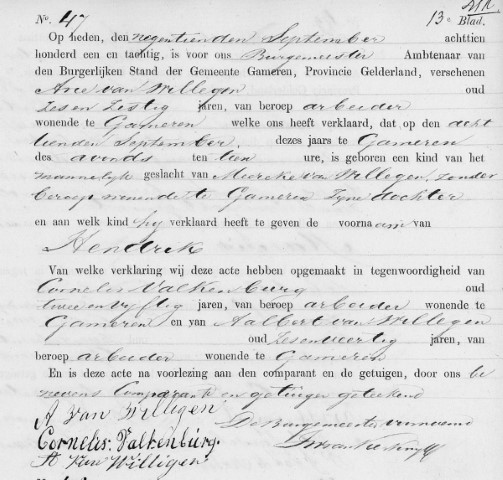 No. 47
13e Blad.
Op heden, den negentienden September achttien
honderd een en tachtig, is voor ons Burgemeester Ambtenaar van
den Burgerlijken Stand der Gemeente Gameren, Provincie Gelderland, verschenen
Arie van Willegen oud
zes en zestig jaren, van beroep arbeider
wonende te Gameren welke ons heeft verklaard, dat op den acht
tienden September, dezes jaars te Gameren
des avonds ten tien ure, is geboren een kind van het
mannelijk geslacht van Meerke van Willegen, zonder
beroep wonende te Gameren zijne dochter
en aan welk kind hij verklaard heeft te geven de voornaam van
Hendrik
Van welke verklaring wij deze acte hebben opgemaakt in tegenwoordigheid van
Cornelis Valkenburg oud
twee en vijftig jaren, van beroep arbeider wonende te
Gameren en van Aalbert van Willegen
oud zes en veertig jaren, van
beroep arbeider wonende te Gameren
En is deze acte na voorlezing aan den comparant en de getuigen, door ons be
nevens Comparant en getuigen geteekend
A van Willigen
De Burgemeester voornoemd
Cornelis. Valkenburg.
A van Willigen